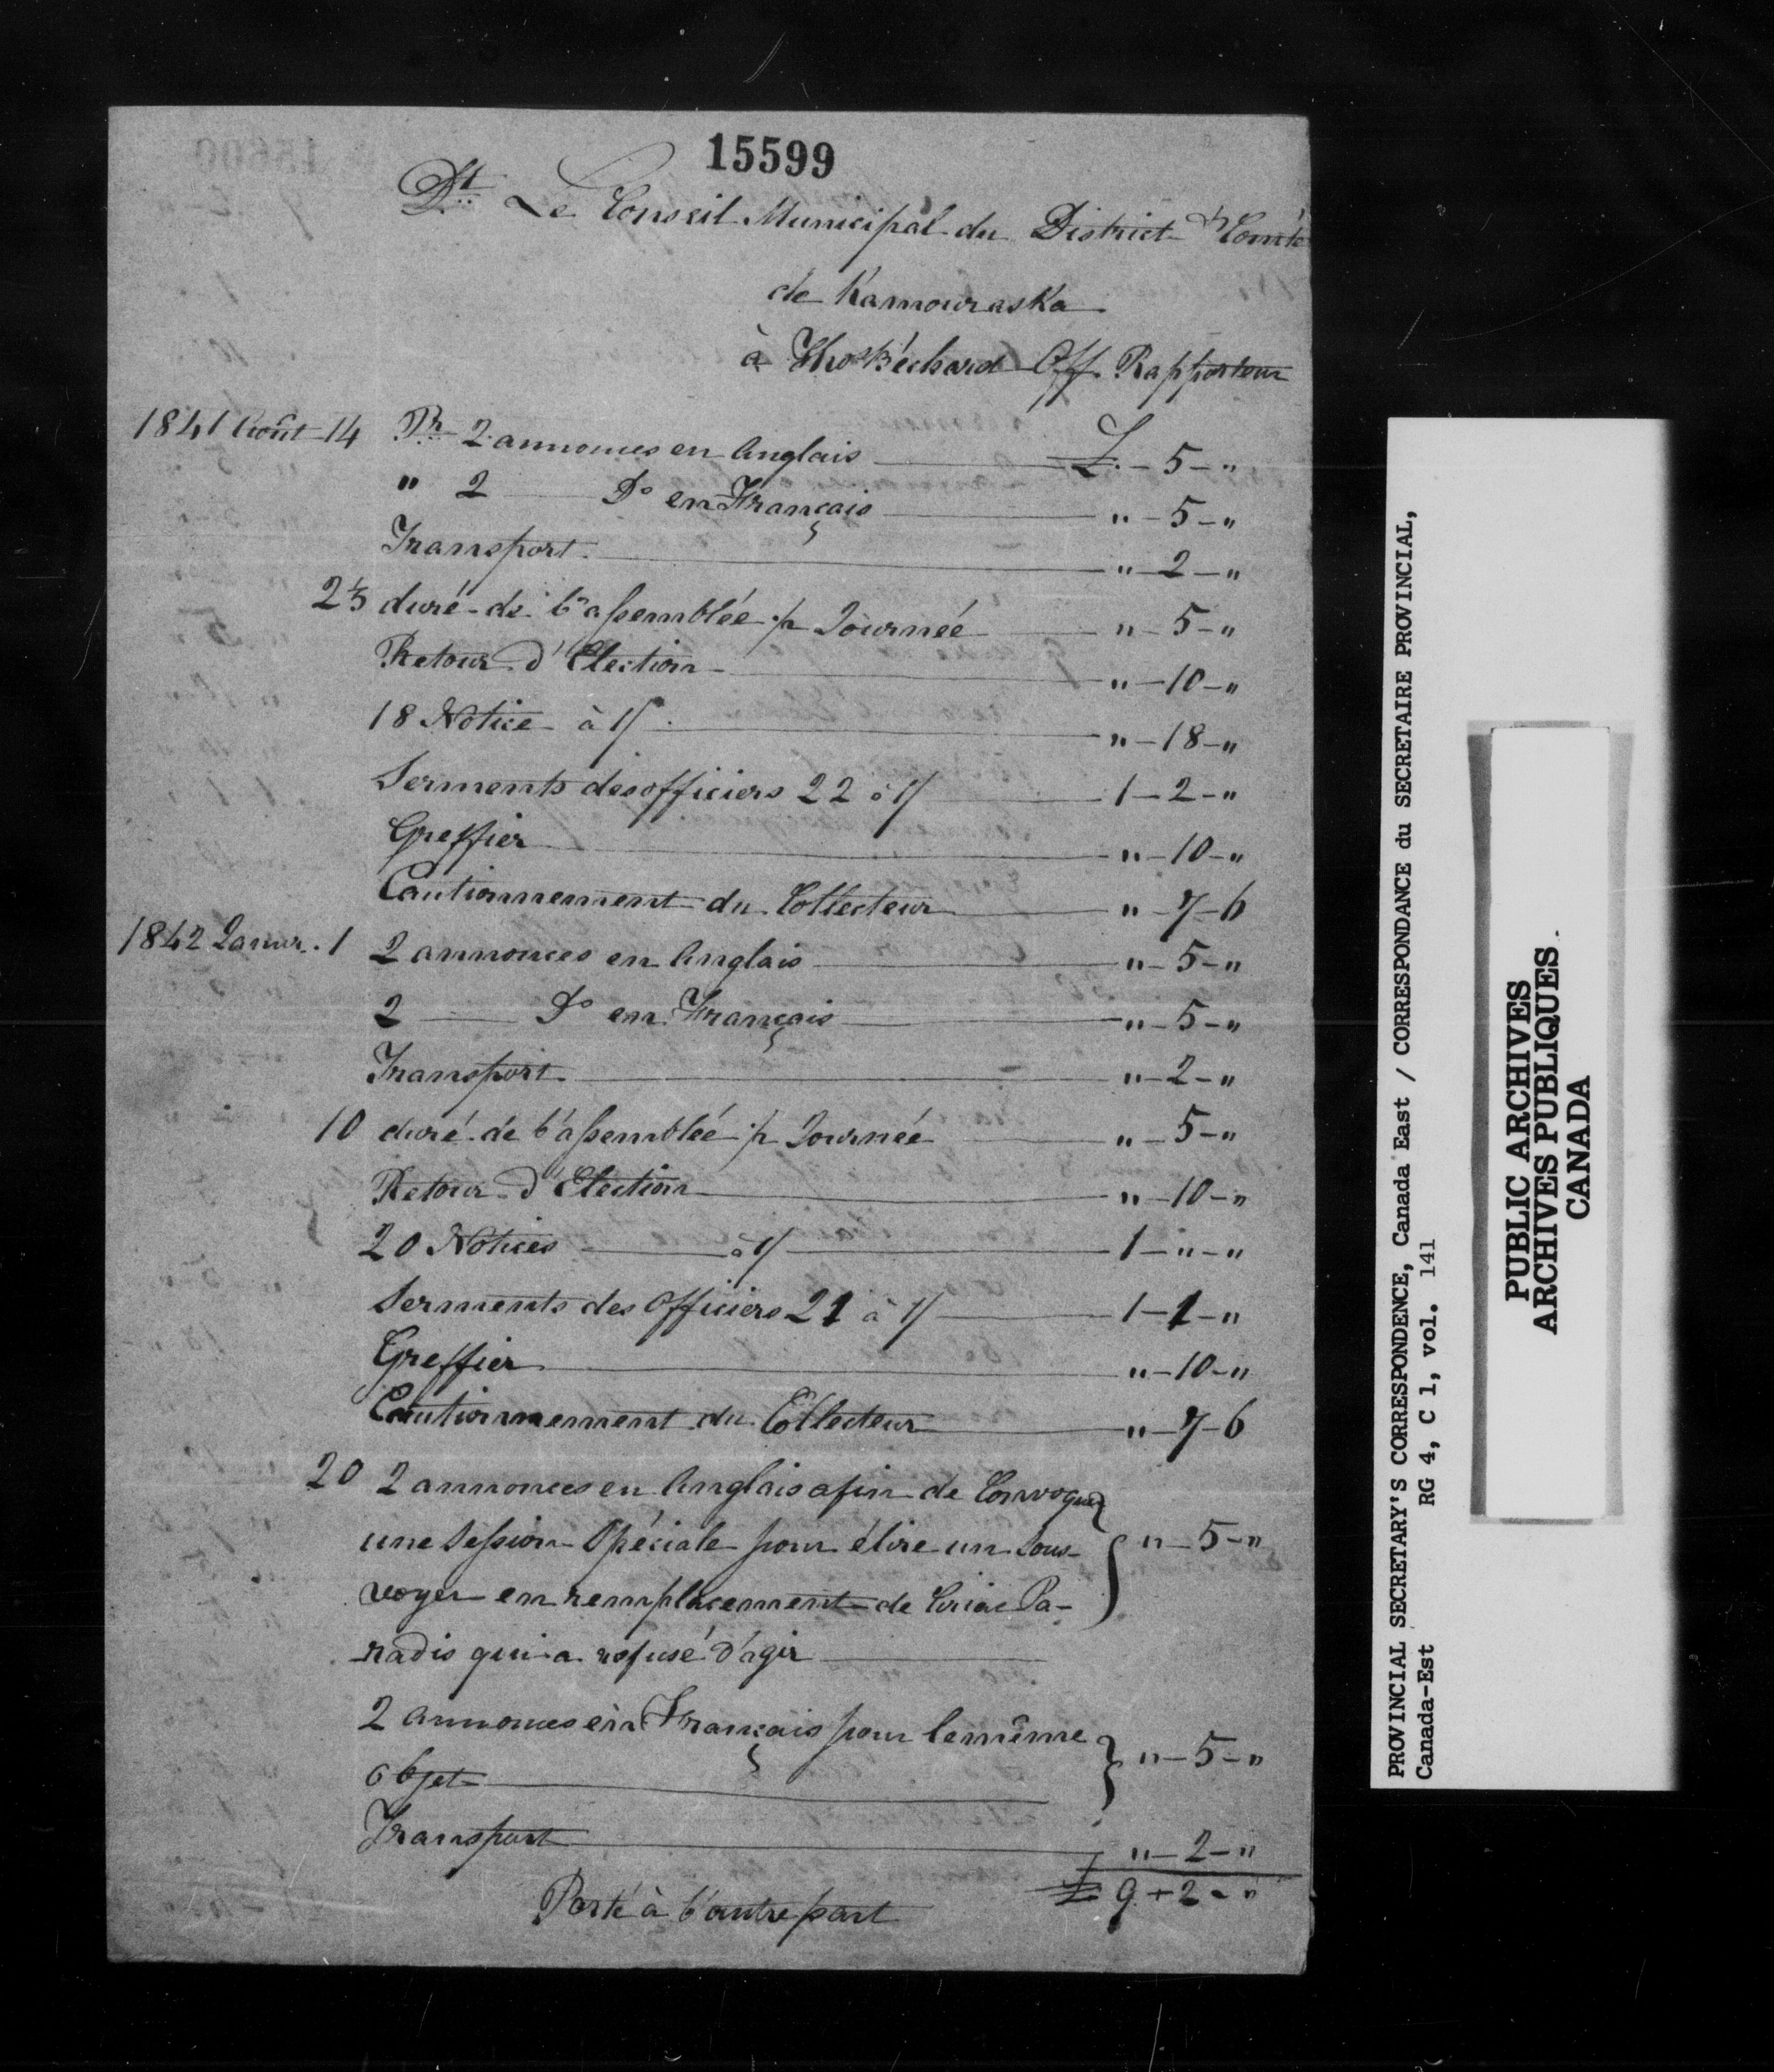 15599
Dt Le Conseil Municipal du District & Comté
de Kamouraska
à Thos Béchard Off. Rapporteur
1841 Août 14 Pr 2 annonces en Anglais £ " - 5 - "
" 2 Do en Français " - 5 - "
Transport " - 2 - "
23 duré de l'assemblée p Journée " - 5 - "
Retour d'Election " - 10 - "
18 Notice à 1/ " - 18 - "
Serments des officiers 22 à 1/ 1 - 2 - "
Greffier " - 10 - "
Cautionnement du Collecteur " - 7 - 6
1842 Janvr. 1 2 annonces en Anglais " - 5 - "
2 Do en Français " - 5 - "
Transport " - 2 - "
10 duré de l'assemblée p Journée " - 5 - "
Retour d'Election " - 10 - "
20 Notices à 1/ 1 - " - "
Serments des Officiers 21 à 1/ 1 - 1 - "
Greffier " - 10 - "
Cautionnement du Collecteur " - 7 - 6
20 2 annonces en Anglais afin de Convoquer
une Session Spéciale pour élire un Sous- " - 5 - "
voyer en remplacement de Ciriac Pa-
radis qui a refusé d'agir
2 annonces èn Français pour le même
objet " - 5 - "
Transport " - 2 - "
£ 9 + 2 - "
Porté à l'autre part
PROVINCIAL SECRETARY'S CORRESPONDENCE, Canada East / CORRESPONDANCE du SECRETAIRE PROVINCIAL,
Canada-Est RG 4, C 1, vol. 141
PUBLIC ARCHIVES
ARCHIVES PUBLIQUES
CANADA